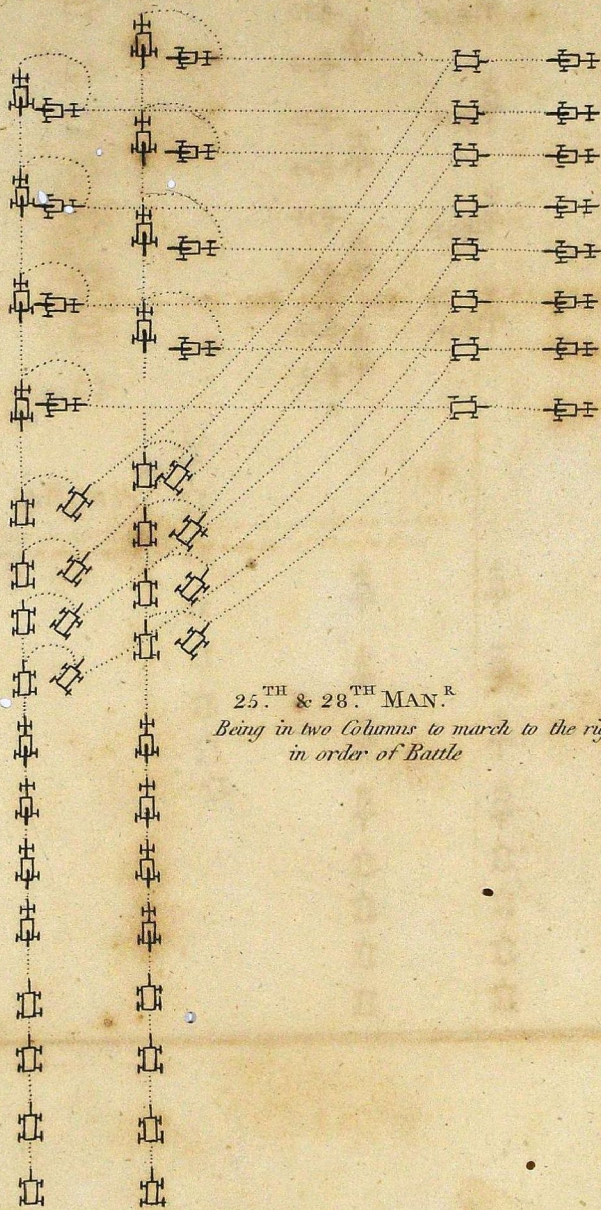 25.TH & 28.TH MAN.R
Being in two Columns to march to the
in order of Battle